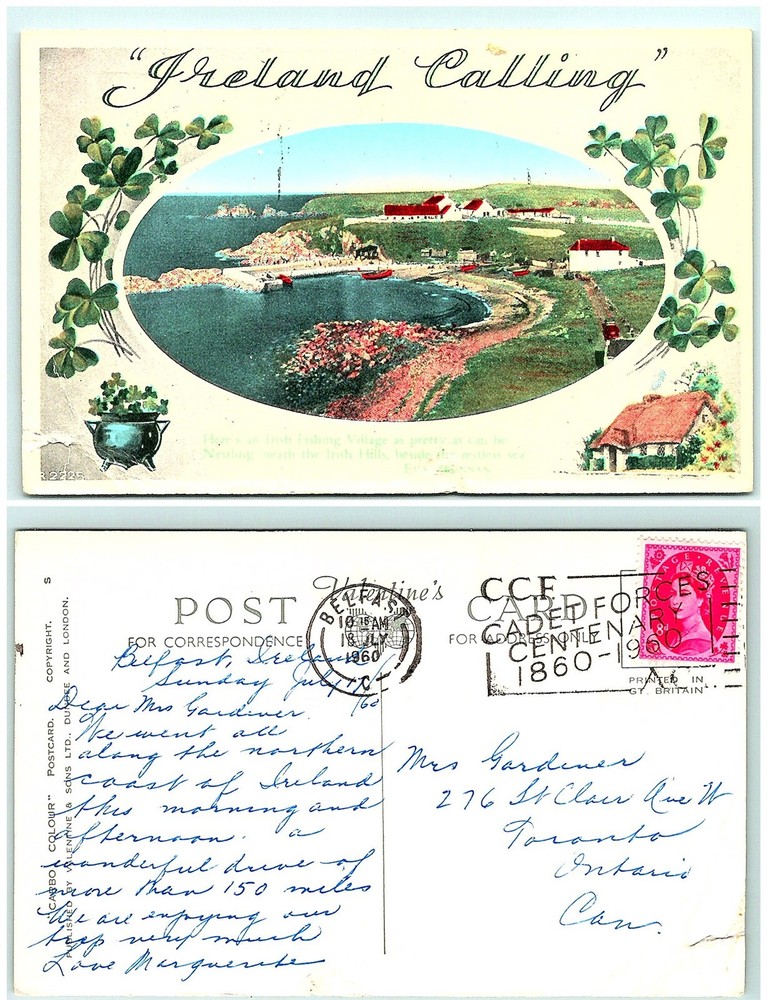 "Ireland Calling"
Here's an Irish Fishing Village as pretty as can be
Nestling 'neath the Irish Hills, beside the restless sea
R.2225
S
"CARBO COLOUR" POSTCARD. COPYRIGHT.
PUBLISHED BY VALENTINE & SONS LTD., DUNDEE AND LONDON.
POST Valentine's CARD
FOR CORRESPONDENCE FOR ADDRESS ONLY
BELFAST
10 15 AM
18 JLY
1960
C
CCF
CADET FORCES
CENTENARY
1860-1960
POSTAGE REVENUE
8D
PRINTED IN
GT. BRITAIN
Belfast, Ireland
Sunday July
/60
Dear Mrs Gardiner.
We went all
along the northern
coast of Ireland
this morning and
afternoon. a
wonderful drive of
more than 150 miles
We are enjoying our
trip very much
Love Marguerite
Mrs Gardiner
276 St Clair Ave W
Toronto
Ontario
Can.